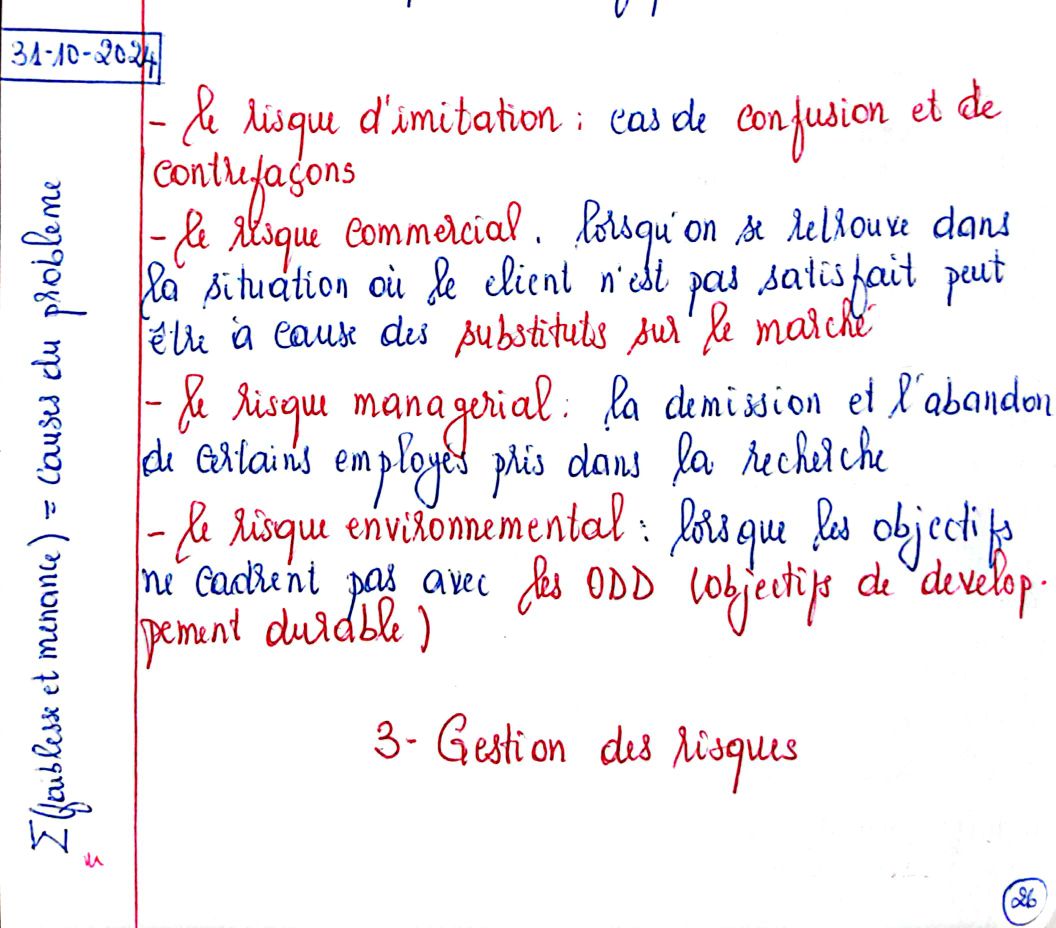 31-10-2024
- le risque d'imitation : cas de confusion et de
contrefaçons
- le risque commercial. lorsqu'on se retrouve dans
la situation où le client n'est pas satisfait peut
être à cause des substituts sur le marché
- le risque managerial : la demission et l'abandon
de certains employés pris dans la recherche
- le risque environnemental : lorsque les objectifs
ne cadrent pas avec les ODD (objectifs de develop-
pement durable)
3- Gestion des risques
Σ(faiblesse et menance) = causes du probleme
26